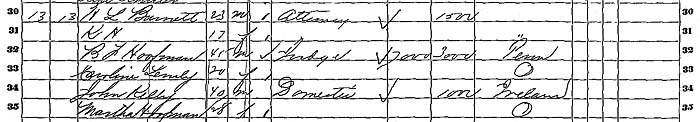 30 13 13 W L Burnett 23 m 1 Attorney 1500 30
31 K H 17 f 1 " 31
32 B F Hoofman 45 m Judge 7000 3000 Penn 32
33 Caroline 20 f 1 O 33
34 John Kelly 40 m 1 Domestic 100 Ireland 34
35 Martha Hoofman 28 f 1 O 35